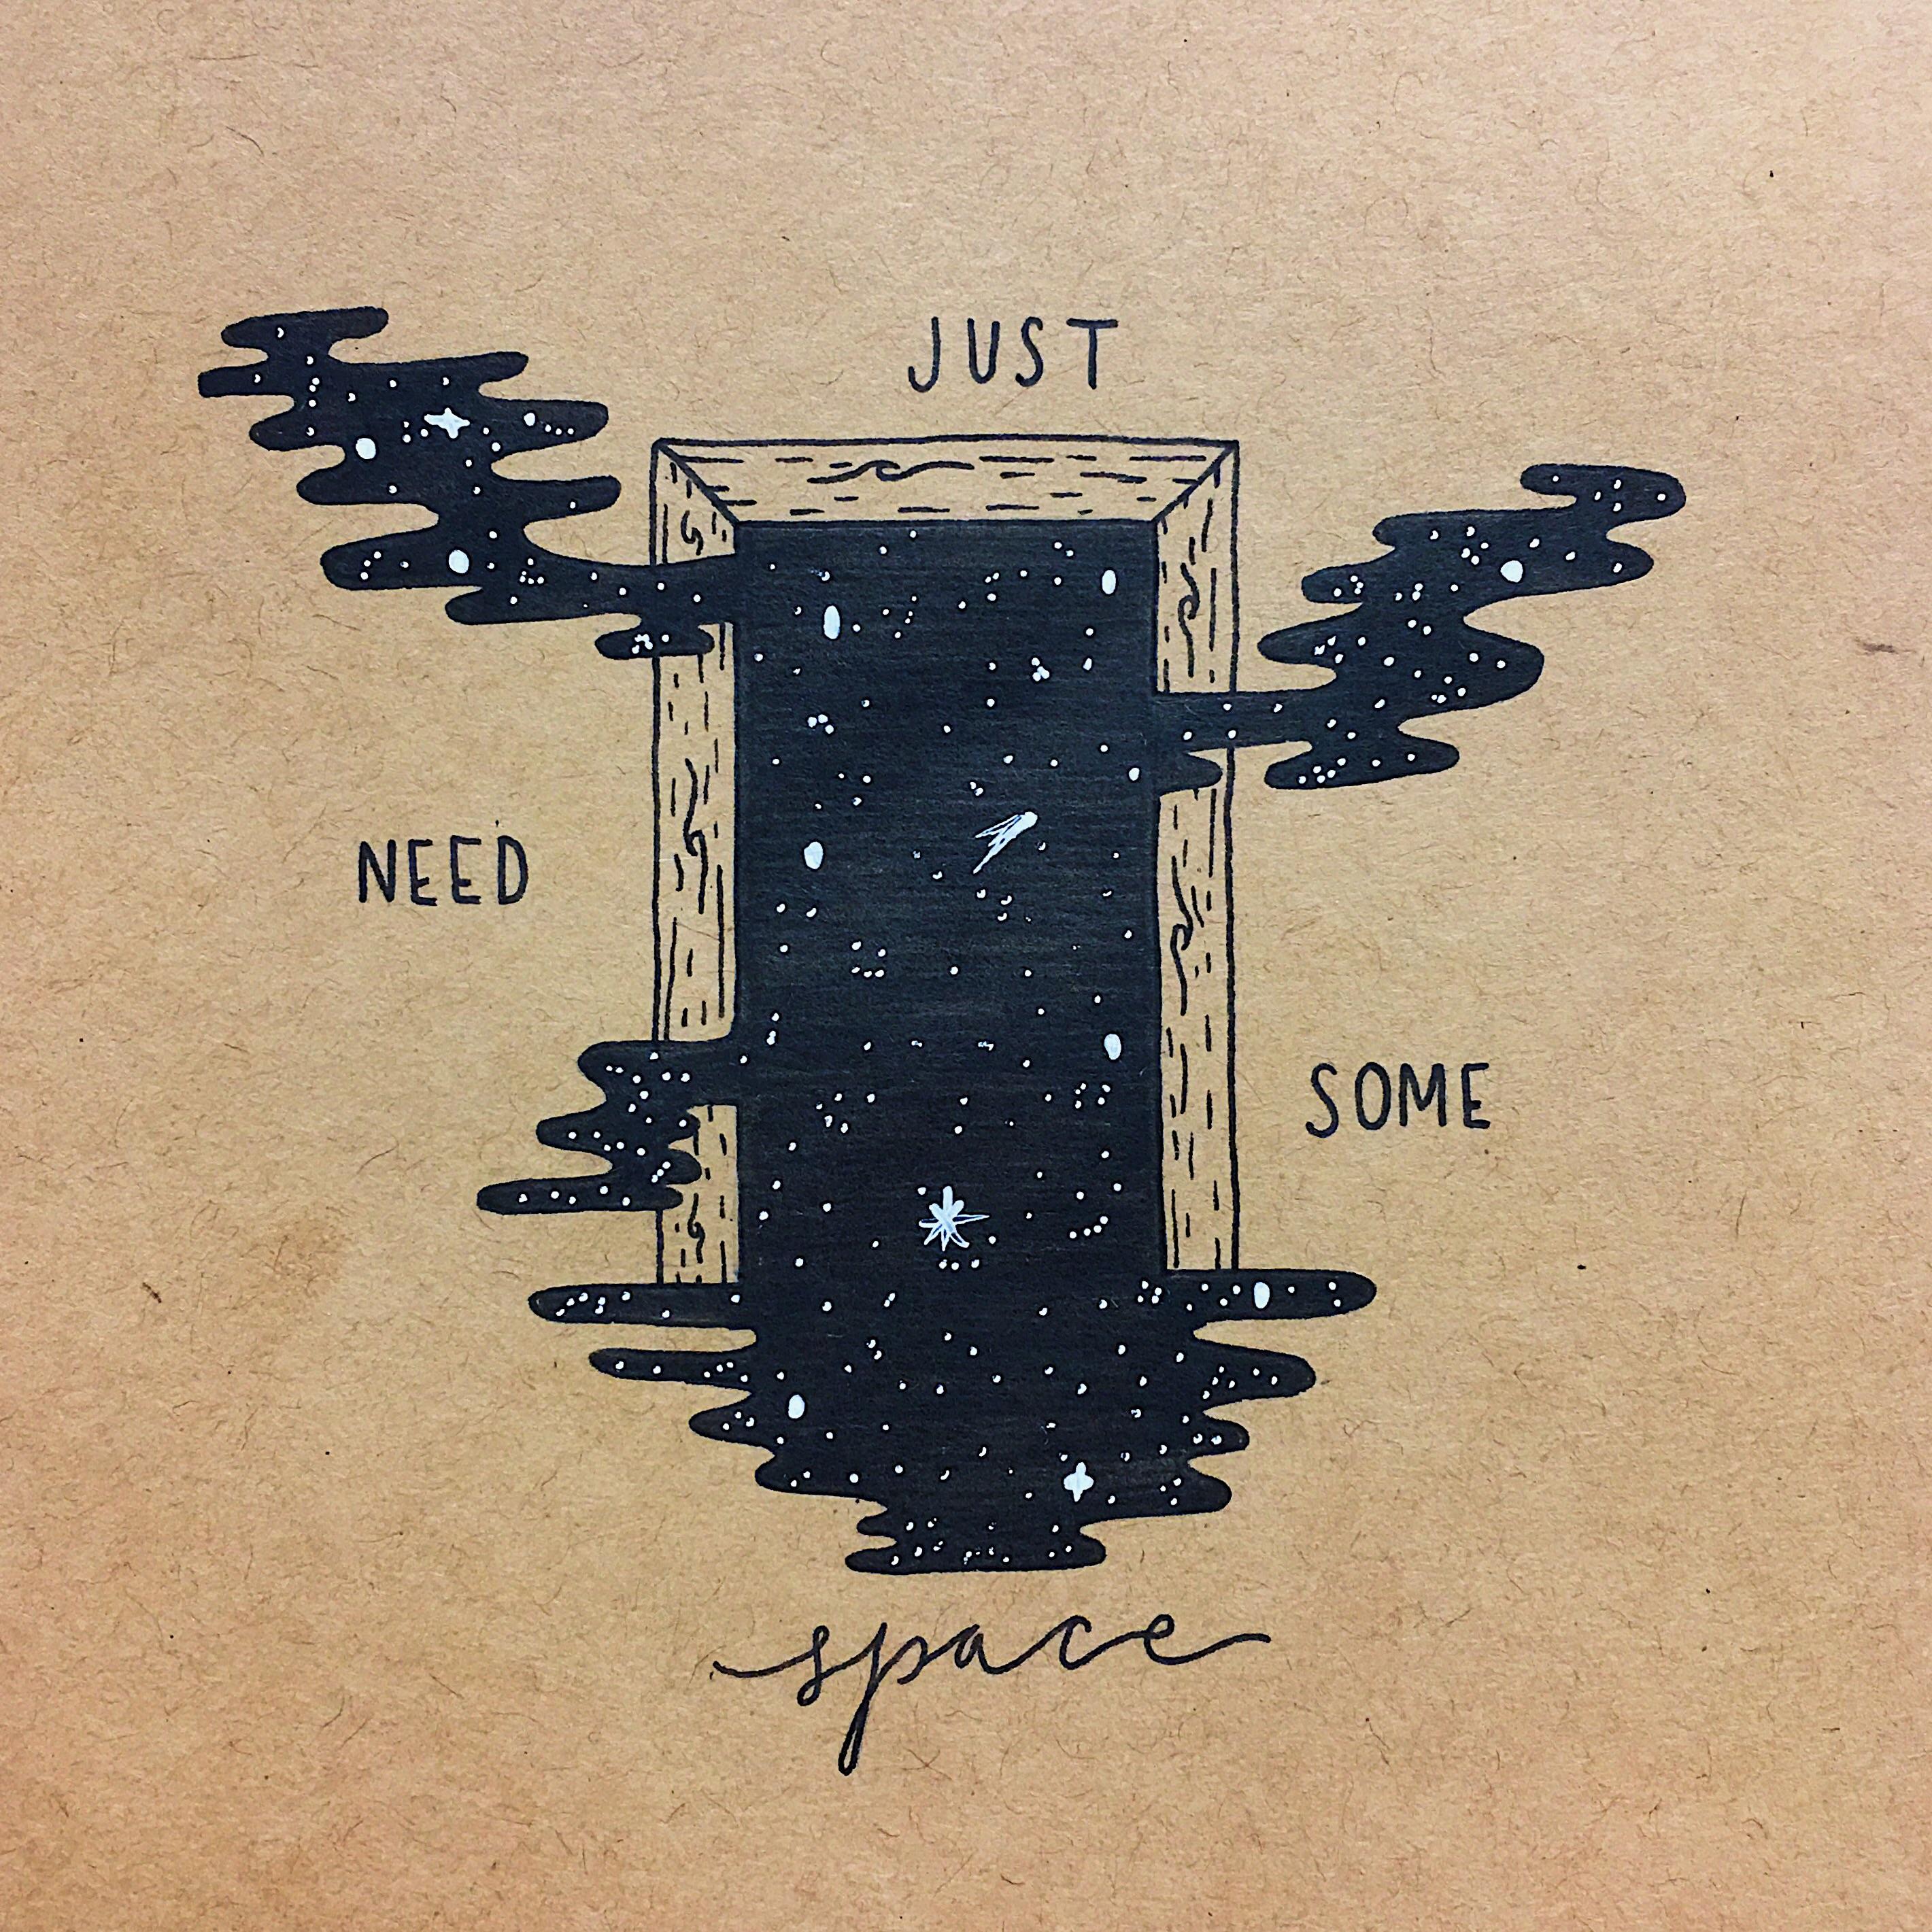 JUST
NEED
SOME
space